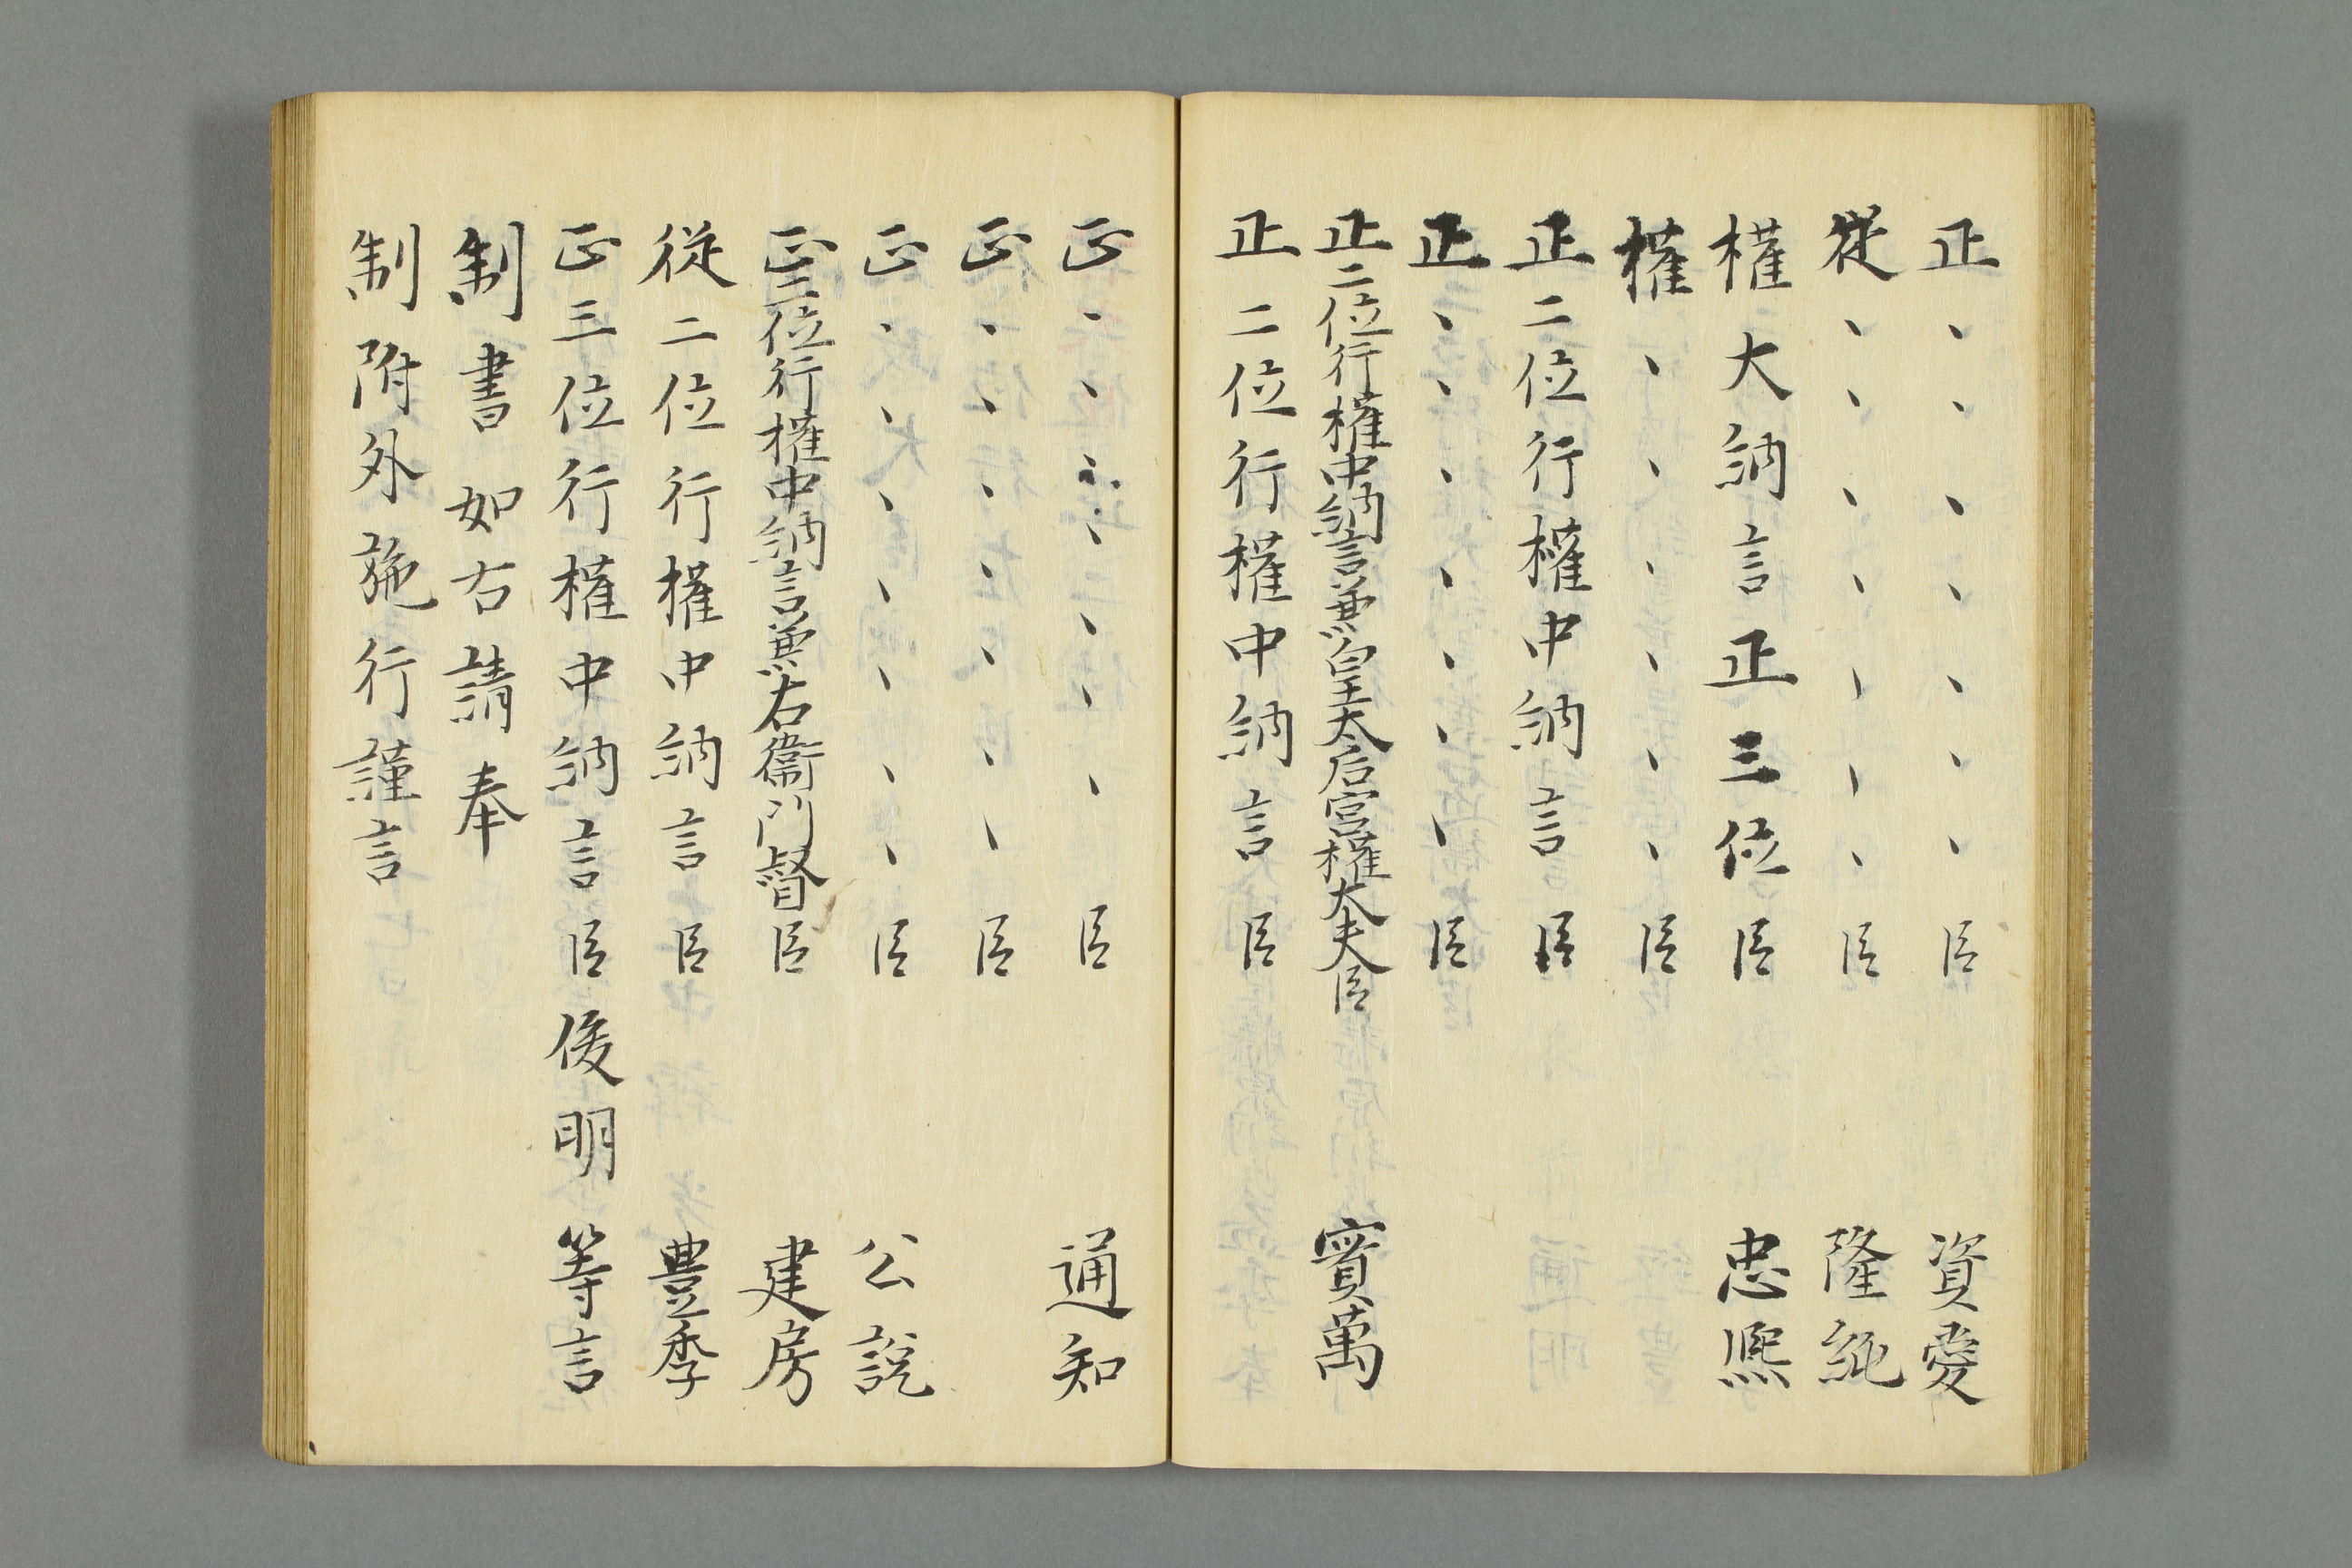 正、、、、、、、臣 資愛
従、、、、、、、臣 隆純
権大納言正三位臣 忠熈
権、、、、、、臣
正二位行権中納言臣
正、、、、、、、臣
正二位行権中納言兼皇太后宮権大夫臣 實萬
正二位行権中納言臣
正、、、、、、、臣 通知
正、、、、、、、臣
正、、、、、、、臣 公說
正三位行権中納言兼右衛門督臣 建房
従二位行権中納言臣 豊季
正三位行権中納言臣俊明 等言
制書如右請奉
制附外施行謹言